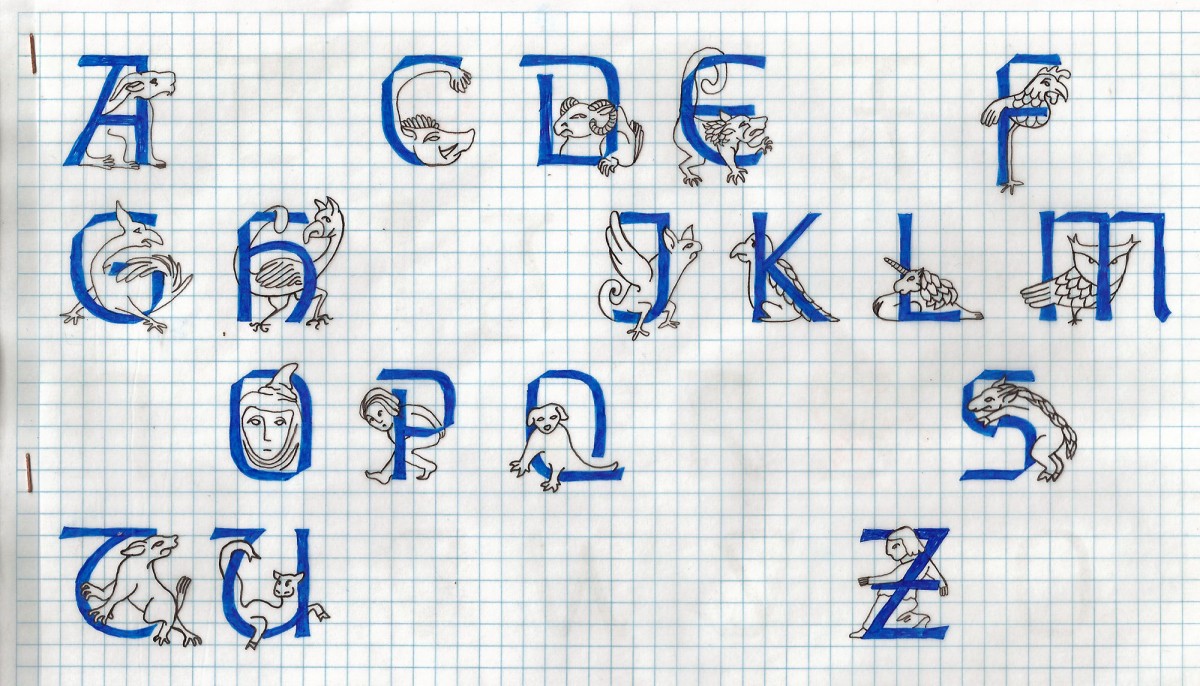 A C D E F
G H J K L M
O P Q S
T U Z